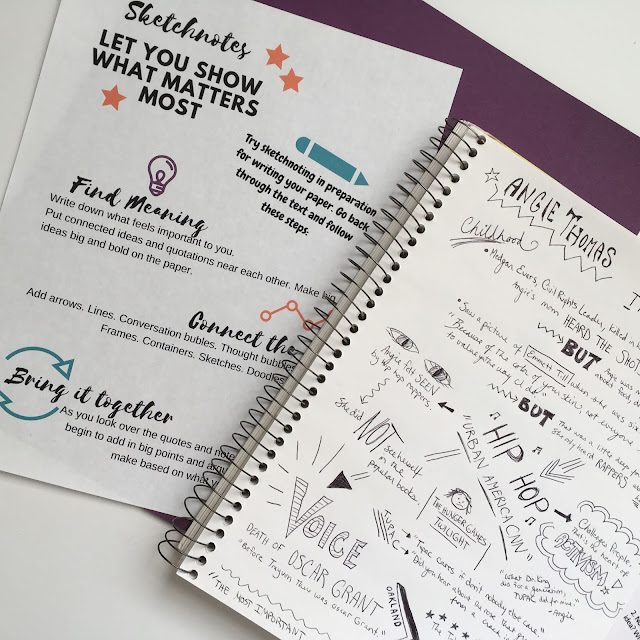 Sketchnotes
LET YOU SHOW
WHAT MATTERS
MOST
Try sketchnoting in preparation
for writing your paper. Go back
through the text and follow
these steps.
Find Meaning
Write down what feels important to you.
Put connected ideas and quotations near each other. Make big
ideas big and bold on the paper.
Connect the
Add arrows. Lines. Conversation bubles. Thought bubbles
Frames. Containers. Sketches. Doodles
Bring it together
As you look over the quotes and note
begin to add in big points and
make based on what
ANGIE THOMAS
Childhood
Medgar Evers, Civil Rights Leader, killed in
Angie's mom HEARD THE SHOT
BUT
Saw a picture of Emmett Till when she was
"Because of the color of your skin, not everyone
BUT
Angie felt SEEN
by hip hop rappers.
She did
NOT
see herself
in the
popular books.
THE HUNGER GAMES
TWILIGHT
HIP
HOP
"URBAN AMERICA'S CNN"
RAPPERS
Challenges People
that's the heart of
ACTIVISM
VOICE
TUPAC
DEATH OF OSCAR GRANT
"Before Trayvon there was Oscar Grant"
"THE MOST IMPORTANT
OAKLAND
Tupac cares if don't nobody else care
Did you hear about the rose that
from a crack
"What Dr. King
did for a generation,
TUPAC did for mine"
-Angie